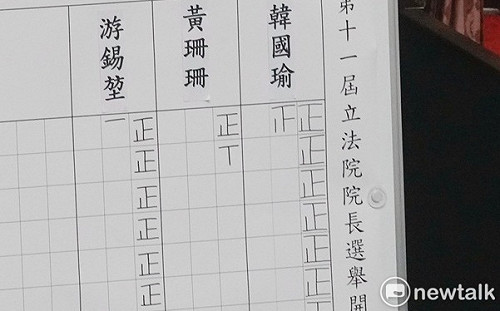 第十一屆立法院院長選舉開
韓國瑜
正
正
正
正
正
正
黃珊珊
正
游錫堃
正
正
正
正
正
正
一
newtalk